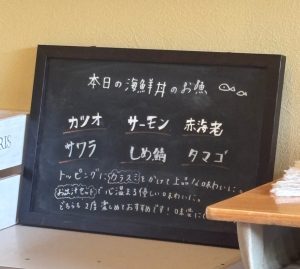 本日の海鮮丼のお魚
カツオ サーモン 赤海老
サワラ しめ鯖 タマゴ
トッピングにカラスミをかけて上品な味わいに。
お出汁セットで心温まる優しい味わいに。
どちらも2度楽しめておすすめです!
RIS